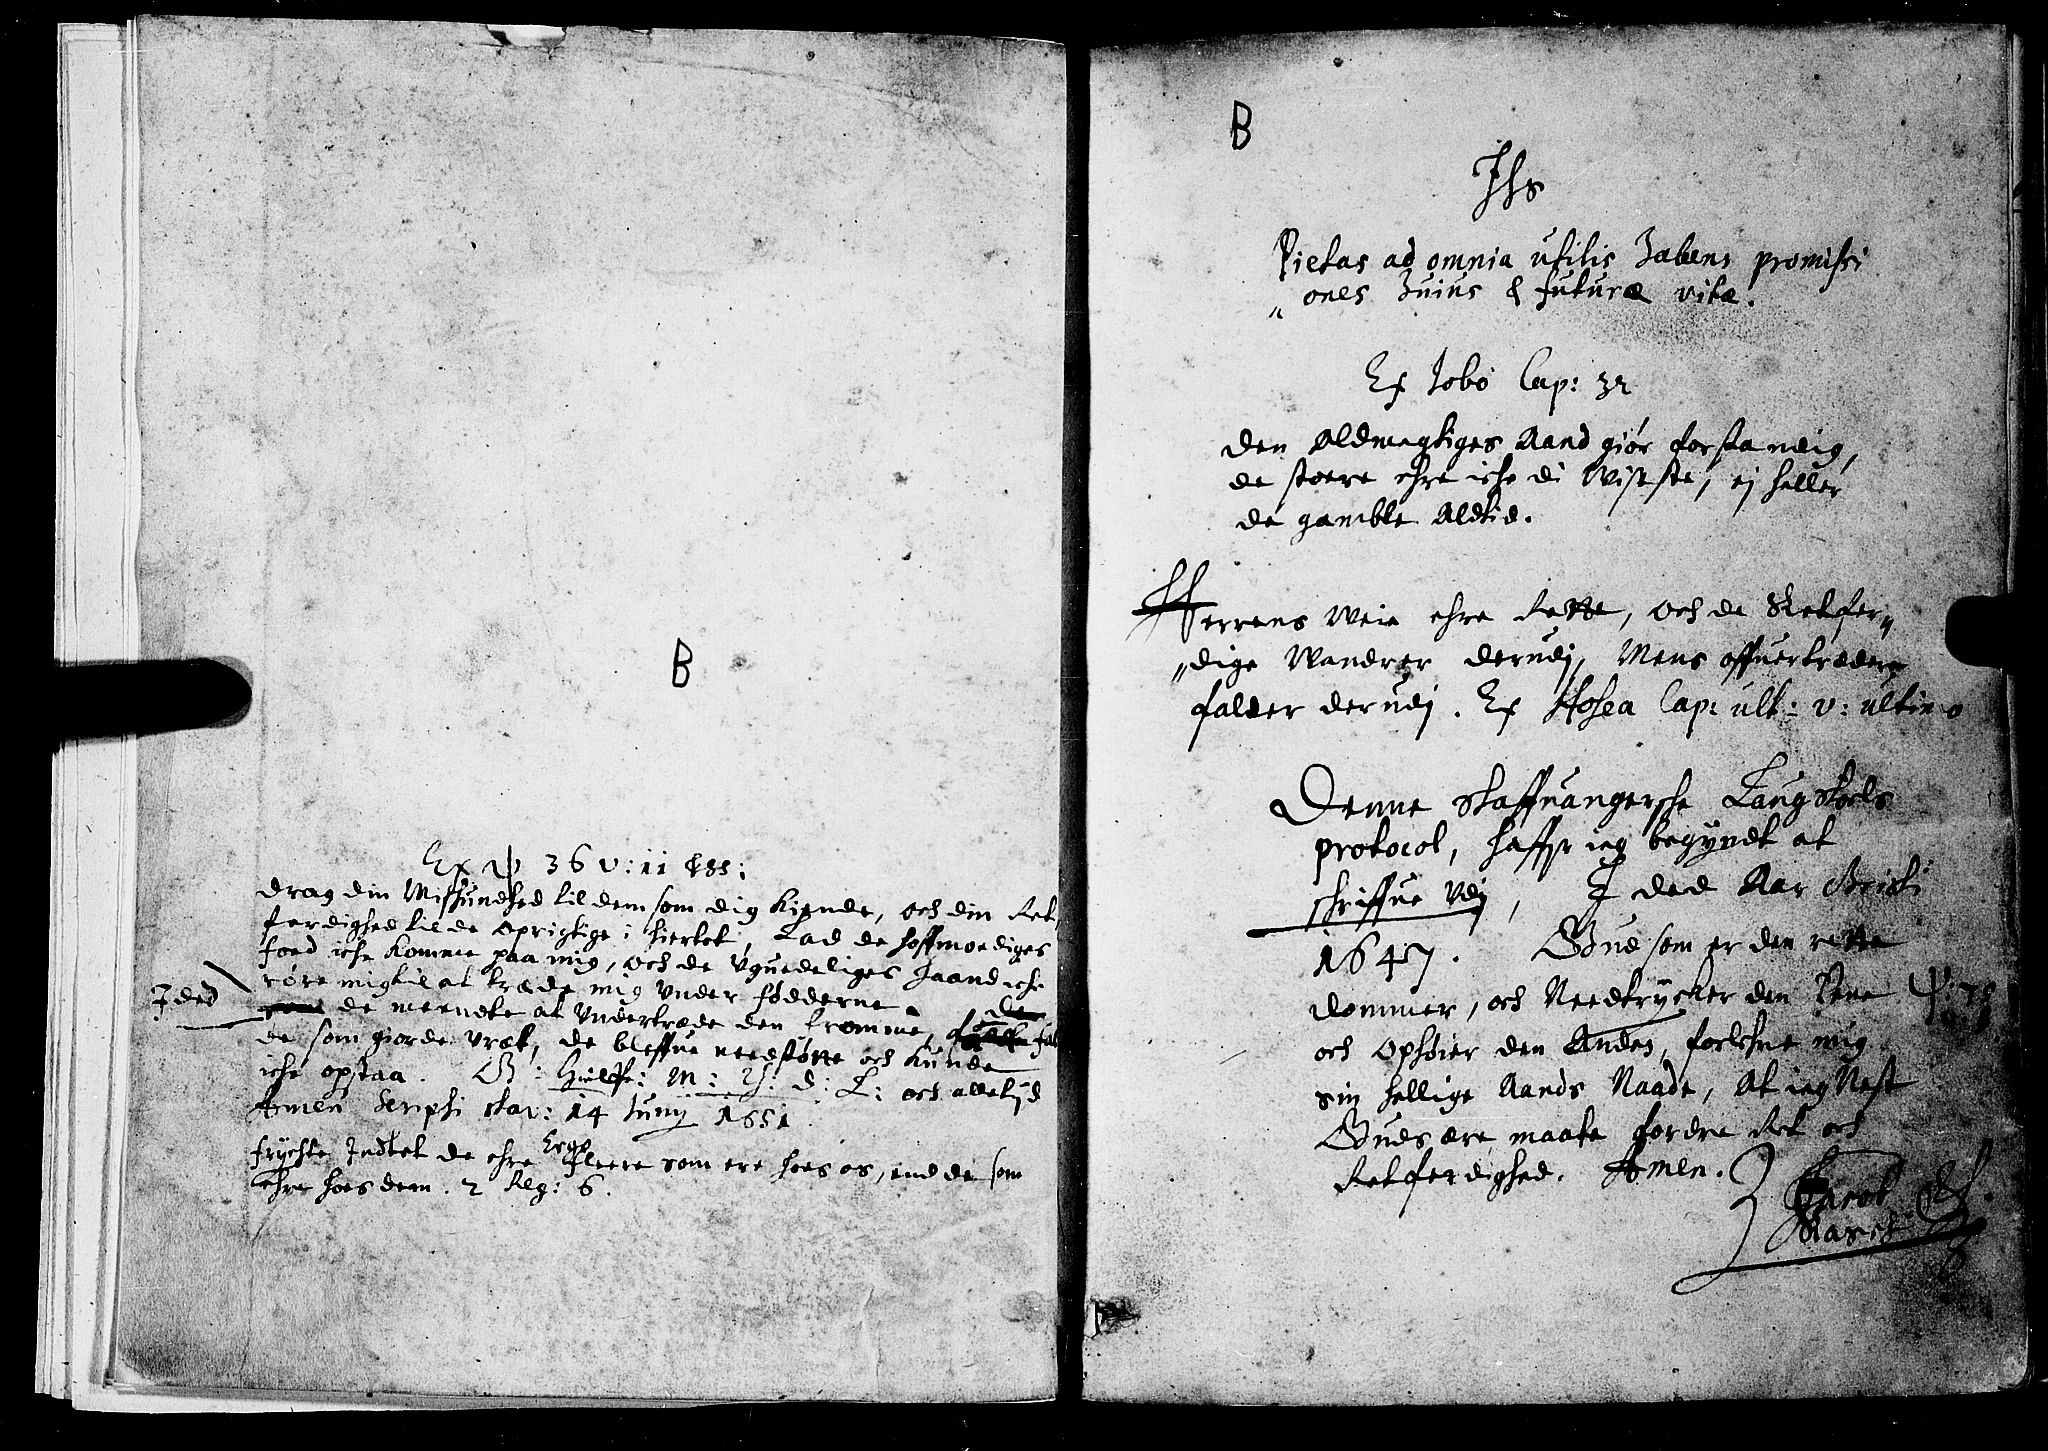 B
Ex ψ 36 v: 11 &ss:
drag din Miskundhed til dem som dig kiende, och din Ret,
ferdighed til de oprigtige i hiertet, Lad de hoffmodiges
foed iche komme paa mig, och de Vgudeliges haand iche
røre mig til at træde mig under fødderne.
Ided de meendte at Vndertræde den fromme,
de som giorde Vræt, de bleffue needstøtte och kunde
iche opstaa. G: Hielffe: M: H: d: L: och alletijd
Amen Scripsi Stav: 14 Junij 1651
Ergo
frychte Indtet de ehre fleere som ere hoes os, end de som
ehre hoes dem. 2 Reg: 6.
B
Jhs
Pietas ad omnia utilis habens promissi
„ones huius & futuræ vitæ.
Ex Jobo Cap: 32
den Aldmegtiges Aand giør forstandig,
de stoere ehre iche di Viseste, ej heller
de gamble Aldtid.
Herrens Veie ehre Rette, och de Retfer„
„dige Vandrer derudj, Mens offuertrædere
falder derudj. Ex Hosea Cap: ult: v: ultimo
Denne Staffuangersche Laugstoels
protocol, haffr ieg begyndt at
schriffue Vdj, I ded Aar Christi
1647. Gud som er den rette
dommer, och Needtrycker den Eene ψ: 75
och ophøier den Anden, forlehne mig
sin hellige Aands Naade, At ieg Nest
Guds ære maate fordre Ret och
Retferdighed. Amen.
Jacob